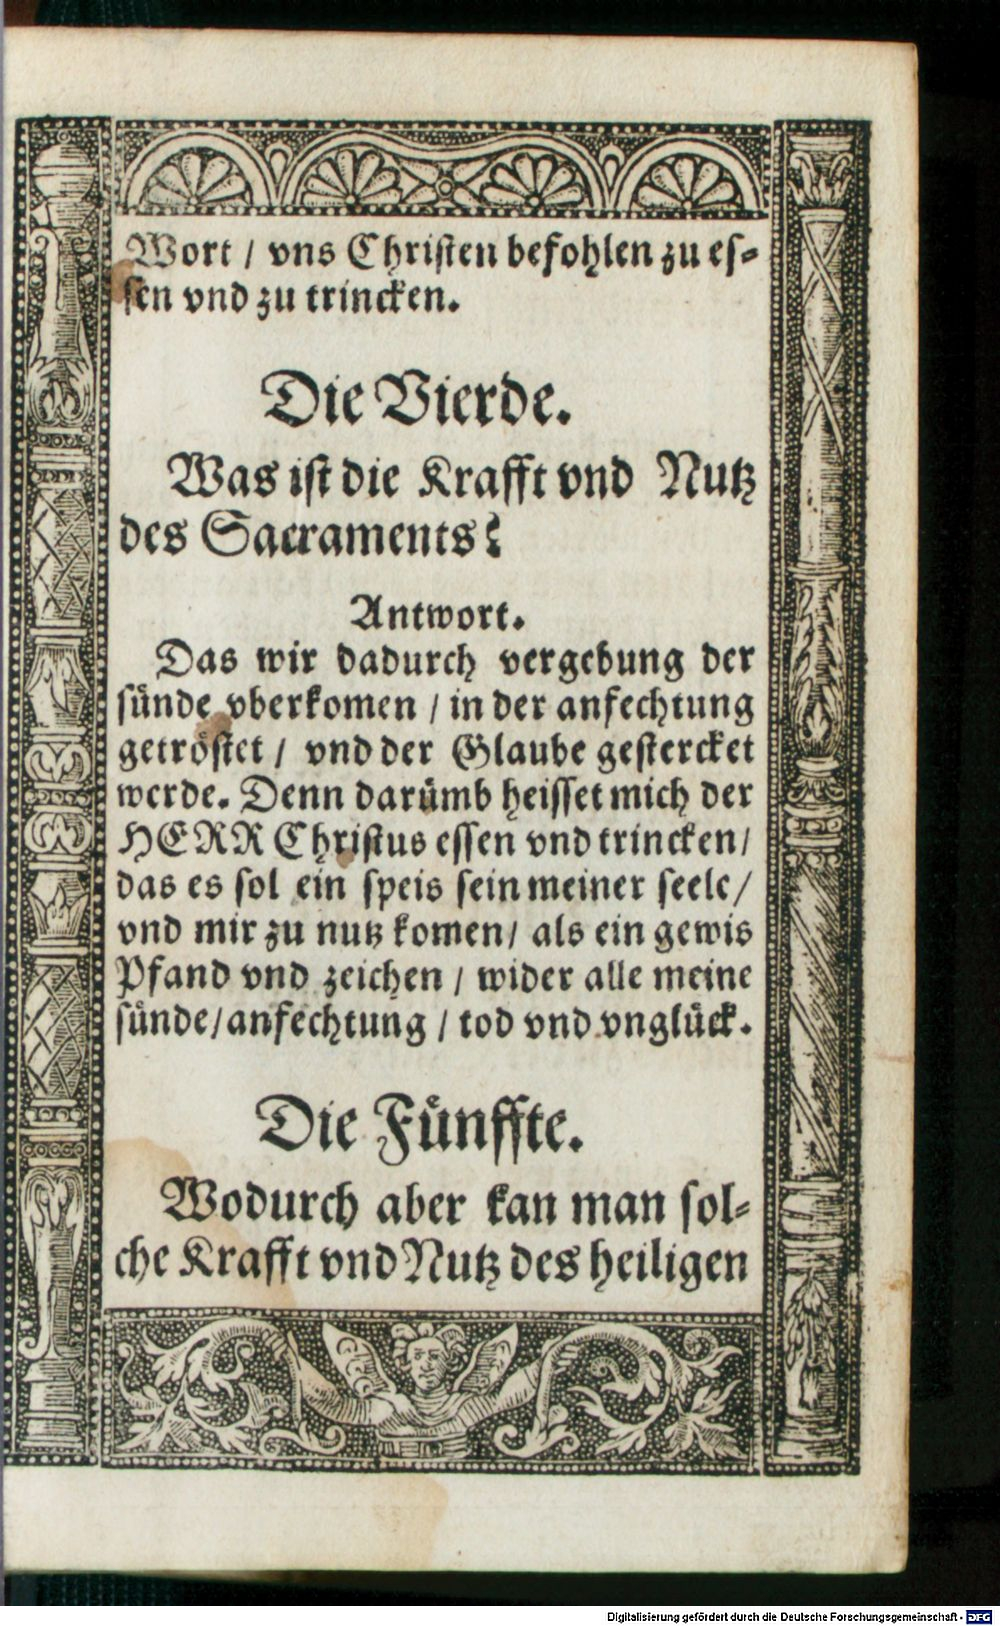 Wort / vns Christen befohlen zu es-
sen vnd zu trincken.
Die Vierde.
Was ist die Krafft vnd Nutz
des Sacraments?
Antwort.
Das wir dadurch vergebung der
sünde vberkomen / in der anfechtung
getröstet / vnd der Glaube gestercket
werde. Denn darümb heisset mich der
HERR Christus essen vnd trincken /
das es sol ein speis sein meiner seele /
vnd mir zu nutz komen / als ein gewis
Pfand vnd zeichen / wider alle meine
sünde / anfechtung / tod vnd vnglück.
Die Fünffte.
Wodurch aber kan man sol-
che Krafft vnd Nutz des heiligen
Digitalisierung gefördert durch die Deutsche Forschungsgemeinschaft - DFG